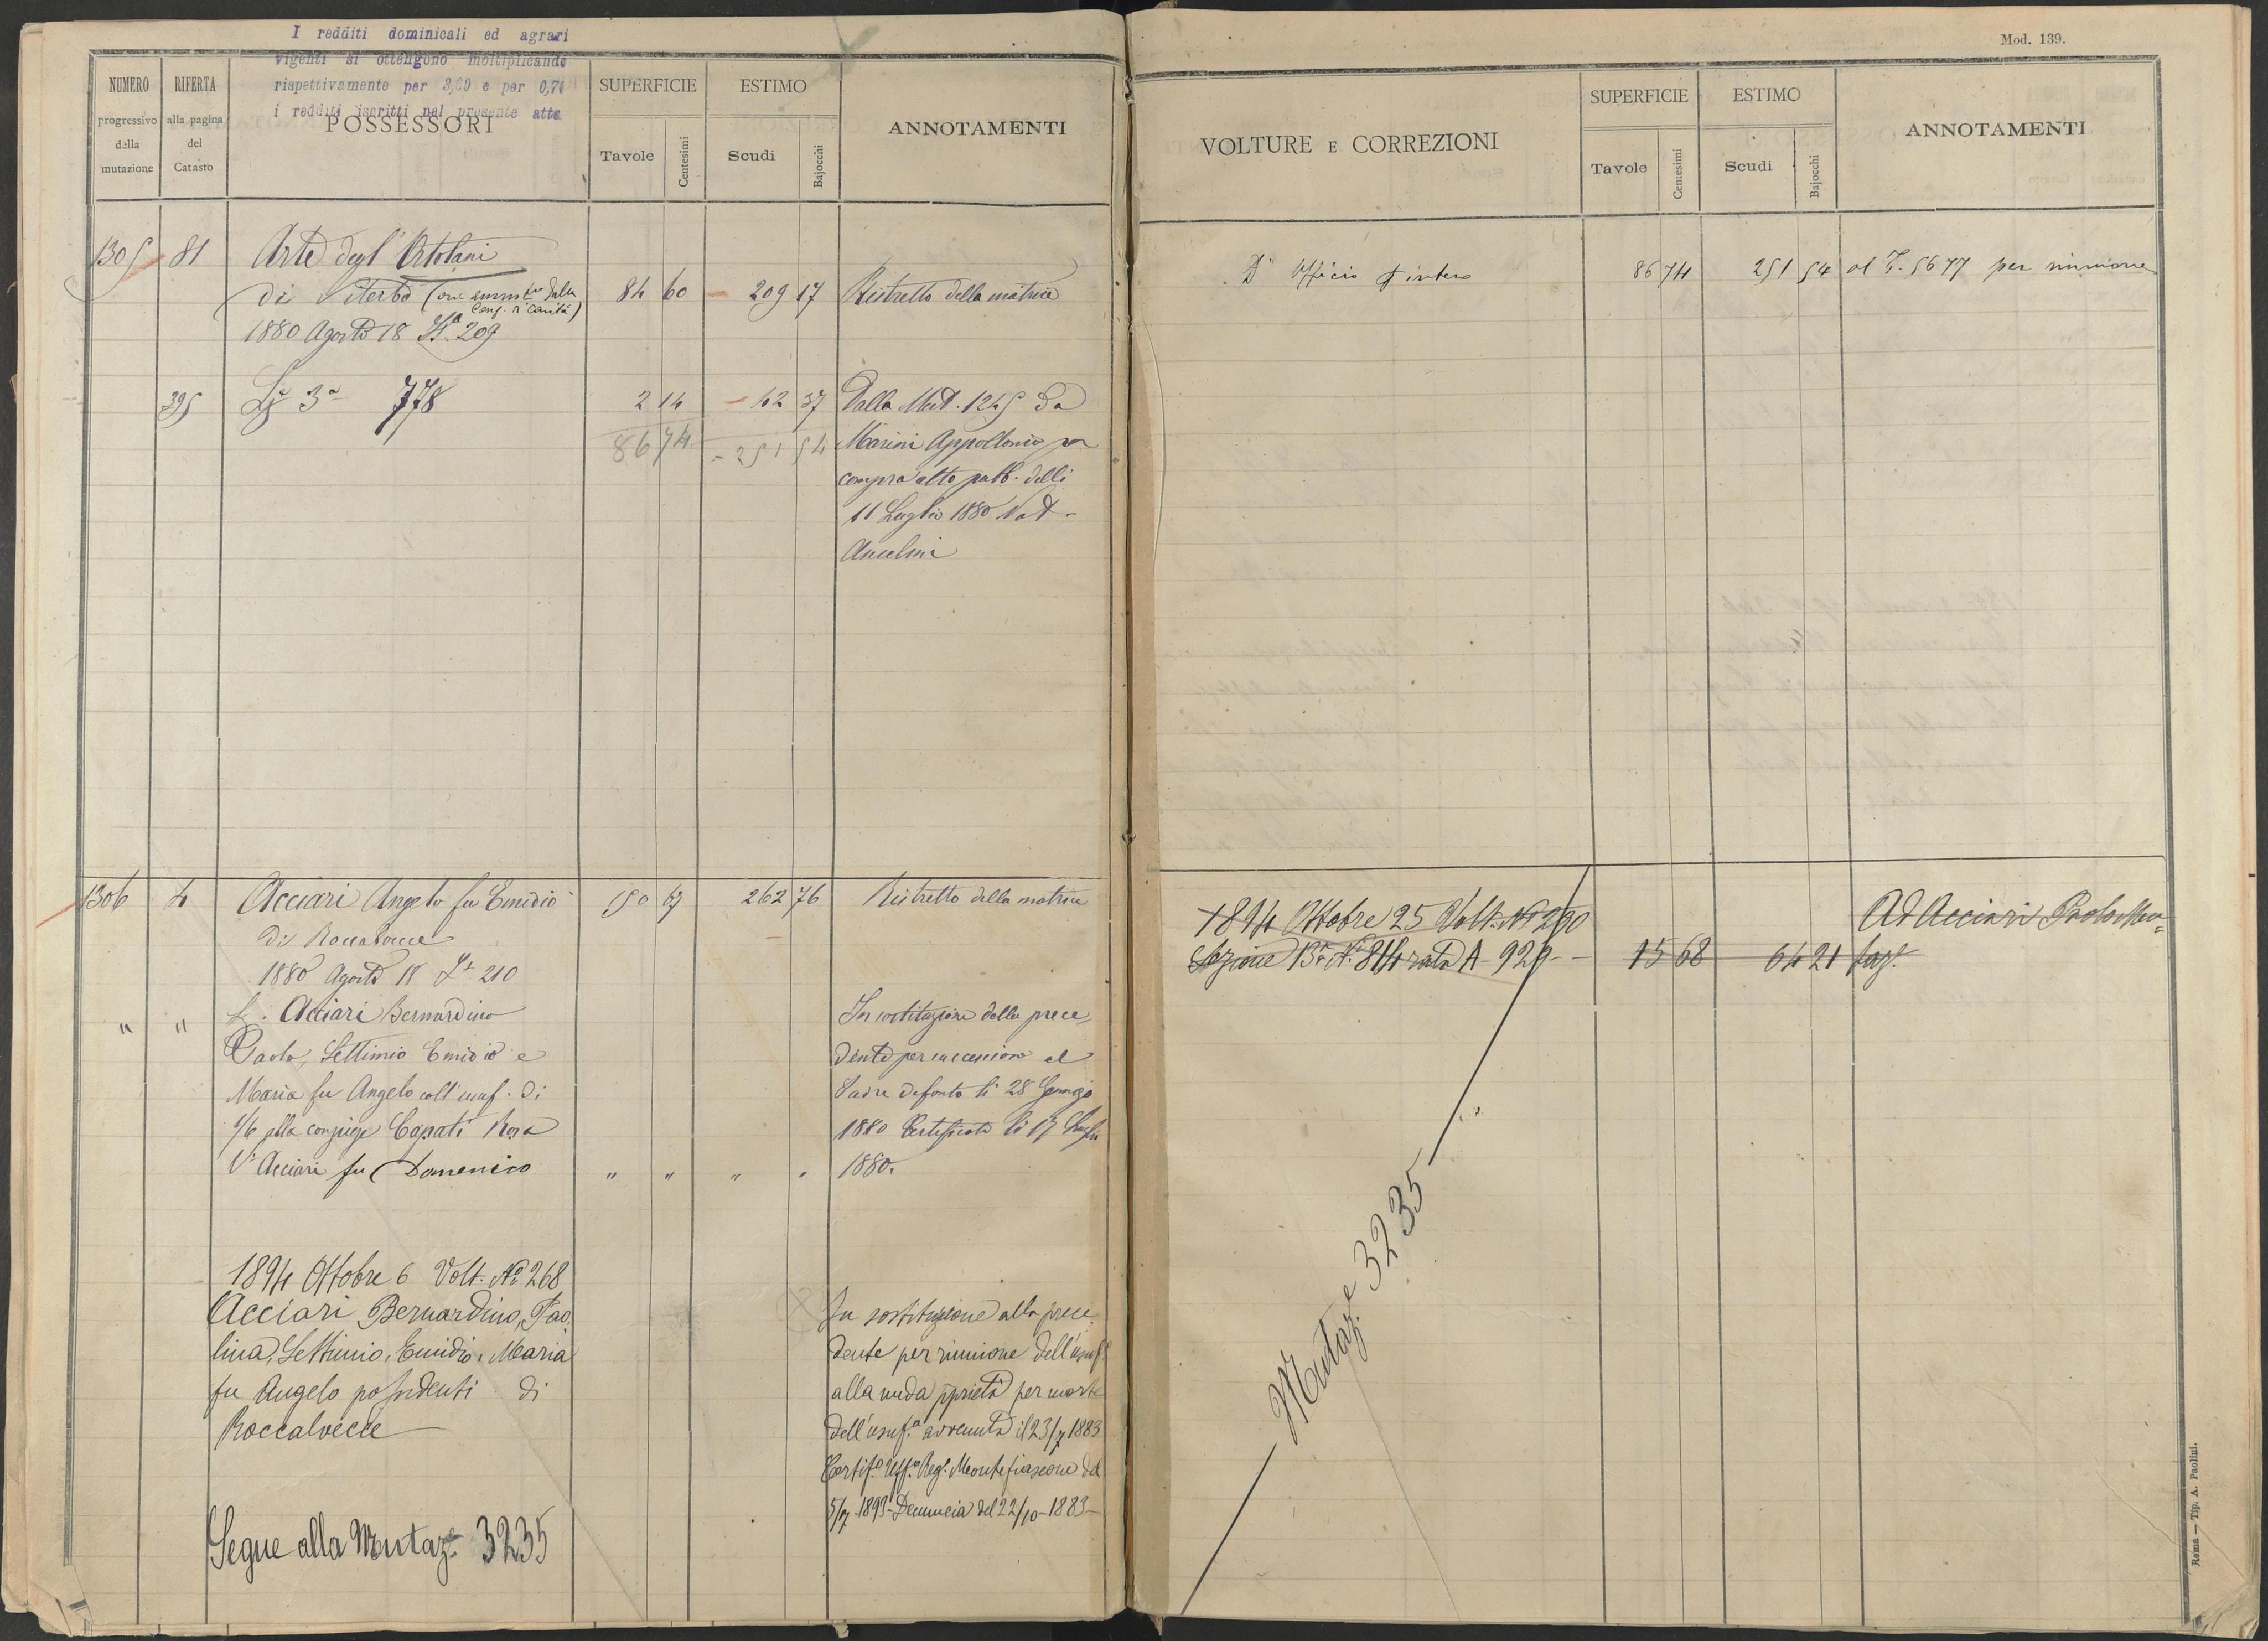 I redditi dominicali ed agrari
vigenti si ottengono moltiplicando
rispettivamente per 3,60 e per
i redditi iscritti nel presente atto
NUMERO progressivo della mutazione
RIFERTA alla pagina del Catasto
POSSESSORI
SUPERFICIE
Tavole Centesimi
ESTIMO
Scudi Bajocchi
ANNOTAMENTI
1305 81 Arte degl' Ortolani
di Viterbo (ora amm.ta dalla
Cong. di Carità) 84 60 209 17 Ristretto della matrice
1880 Agosto 18 209
395 3a 778 2 14 42 37 Dalla Mut. 1245 da
86 74 251 54 Marini Appollonio per
compra atto pubb. delli
11 Luglio 1880 Not.
Anselmi
1306 4 Acciari Angelo fu Emidio 150 67 262 76 Ristretto della matrice
di Roccalvecce
1880 Agosto 18 210
" " Acciari Bernardino In sostituzione della prece
Paolo, Settimio Emidio e dente per successione al
Maria fu Angelo coll' usuf. di Padre defonto li 28
1/6 alla conjuge Capati Rosa 1880 Certificato li 17
Va Acciari fu Domenico " " " " 1880.
1894 Ottobre 6 Volt. No 268
Acciari Bernardino, Pao
lina, Settimio, Emidio, Maria
fu Angelo possidenti di
Roccalvecce
In sostituzione alla prece
dente per riunione dell'usuf.
alla nuda pprietà per morte
dell'usuf.a avvenuta il 23/7 1883
Certif.o Uff.o Reg.o Montefiascone del
5/7 1893 - Denuncia del 22/10 - 1883 -
Segue alla Mutaz.e 3235
Mod. 139.
VOLTURE E CORREZIONI
SUPERFICIE
Tavole Centesimi
ESTIMO
Scudi Bajocchi
ANNOTAMENTI
D' Ufficio l'intero 86 74 251 54 al 5677 per riunione
1894 Ottobre 25 Volt. No 290 Ad Acciari Paolo Mu=
Sezione 13a No 814 rata A - 929 - 15 68 64 21 taz.e
Mutaz.e 3235
Roma — Tip. A. Paolini.